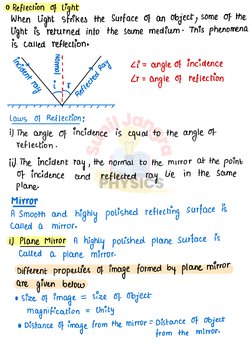 Reflection of Light
When Light strikes the Surface of an object, some of the Light is returned into the same medium. This phenomena is called reflection.
Incident ray
normal
Reflected Ray
i
r
∠i = angle of incidence
∠r = angle of reflection
Laws of Reflection:
i) The angle of incidence is equal to the angle of reflection.
ii) The incident ray, the normal to the mirror at the point of incidence and reflected ray lie in the same plane.
Sunil Jangra
PHYSICS
Mirror
A Smooth and highly polished reflecting surface is Called a mirror.
i) Plane Mirror A highly polished plane Surface is Called a plane mirror.
Different properties of image formed by plane mirror are given below
• Size of image = Size of object
magnification = Unity
• Distance of image from the mirror = Distance of object from the mirror.